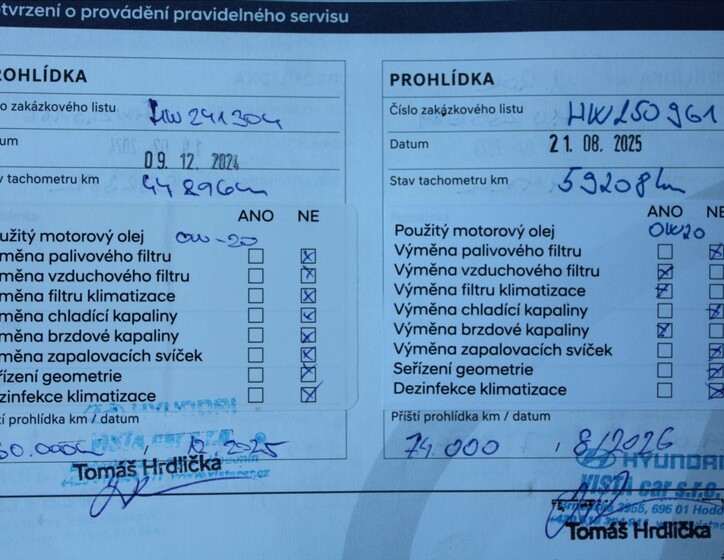 tvrzení o provádění pravidelného servisu
OHLÍDKA
o zakázkového listu HW241304
um 09. 12. 2024
v tachometru km 44 896km
ANO NE
užitý motorový olej 0W-20
měna palivového filtru
měna vzduchového filtru
měna filtru klimatizace
měna chladící kapaliny
měna brzdové kapaliny
měna zapalovacích svíček
ízení geometrie
ezinfekce klimatizace
tí prohlídka km / datum
12/2025
HYUNDAI
Tomáš Hrdlička
PROHLÍDKA
Číslo zakázkového listu HW250961
Datum 21. 08. 2025
Stav tachometru km 59208km
ANO NE
Použitý motorový olej 0W20
Výměna palivového filtru
Výměna vzduchového filtru
Výměna filtru klimatizace
Výměna chladící kapaliny
Výměna brzdové kapaliny
Výměna zapalovacích svíček
Seřízení geometrie
Dezinfekce klimatizace
Příští prohlídka km / datum
74.000 , 8/2026
HYUNDAI
VISTA car s.r.o.
2955, 695 01 Hodo
Tomáš Hrdlička